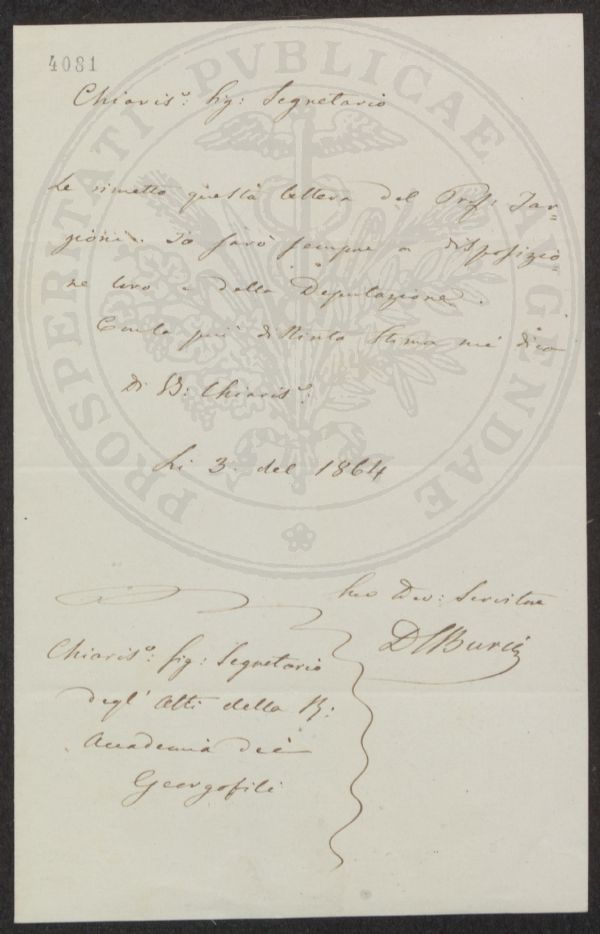 4081
PROSPERITATI PVBLICAE AVGENDAE
Chiaris.º Sig: Segretario
Le rimetto questa lettera del Prof: Tar=
gioni. Io sarò sempre a disposizio=
ne loro e della Deputazione.
Con la più distinta stima mi dico
Di Chiaris.º
Li 3. del 1864
Suo Dev: Servitore
Chiaris.º Sig: Segretario
degl' Atti della R:
Accademia dei
Georgofili